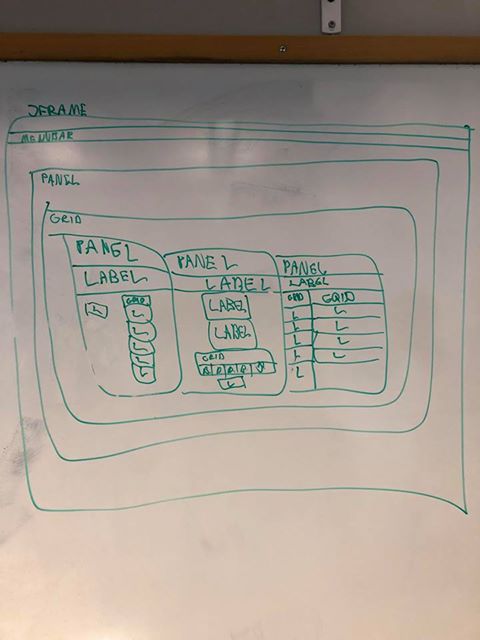 JFRAME
MENUBAR
PANEL
GRID
PANEL
LABEL
L
GRID
L
L
L
L
L
PANEL
LABEL
LABEL
LABEL
GRID
L
PANEL
LABEL
GRID GRID
L L
L L
L L
L L
L